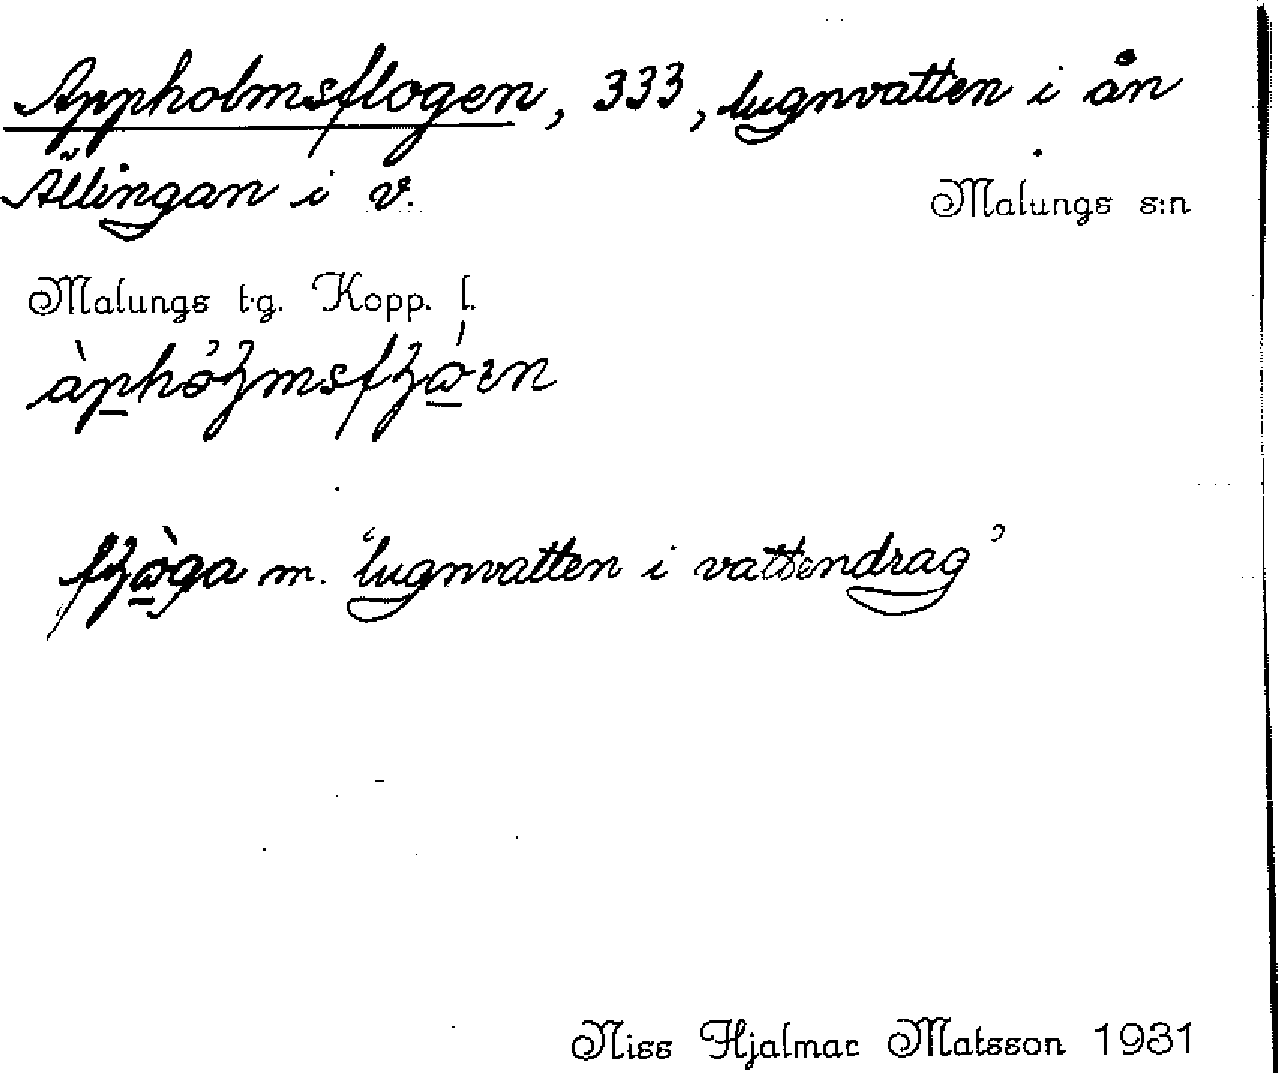 Appholmsflogen, 333, lugnvatten i ån
Ällingan i v.
Malungs s:n
Malungs t.g. Kopp. l.
m. 'lugnvatten i vattendrag'
Niss Hjalmar Matsson 1931